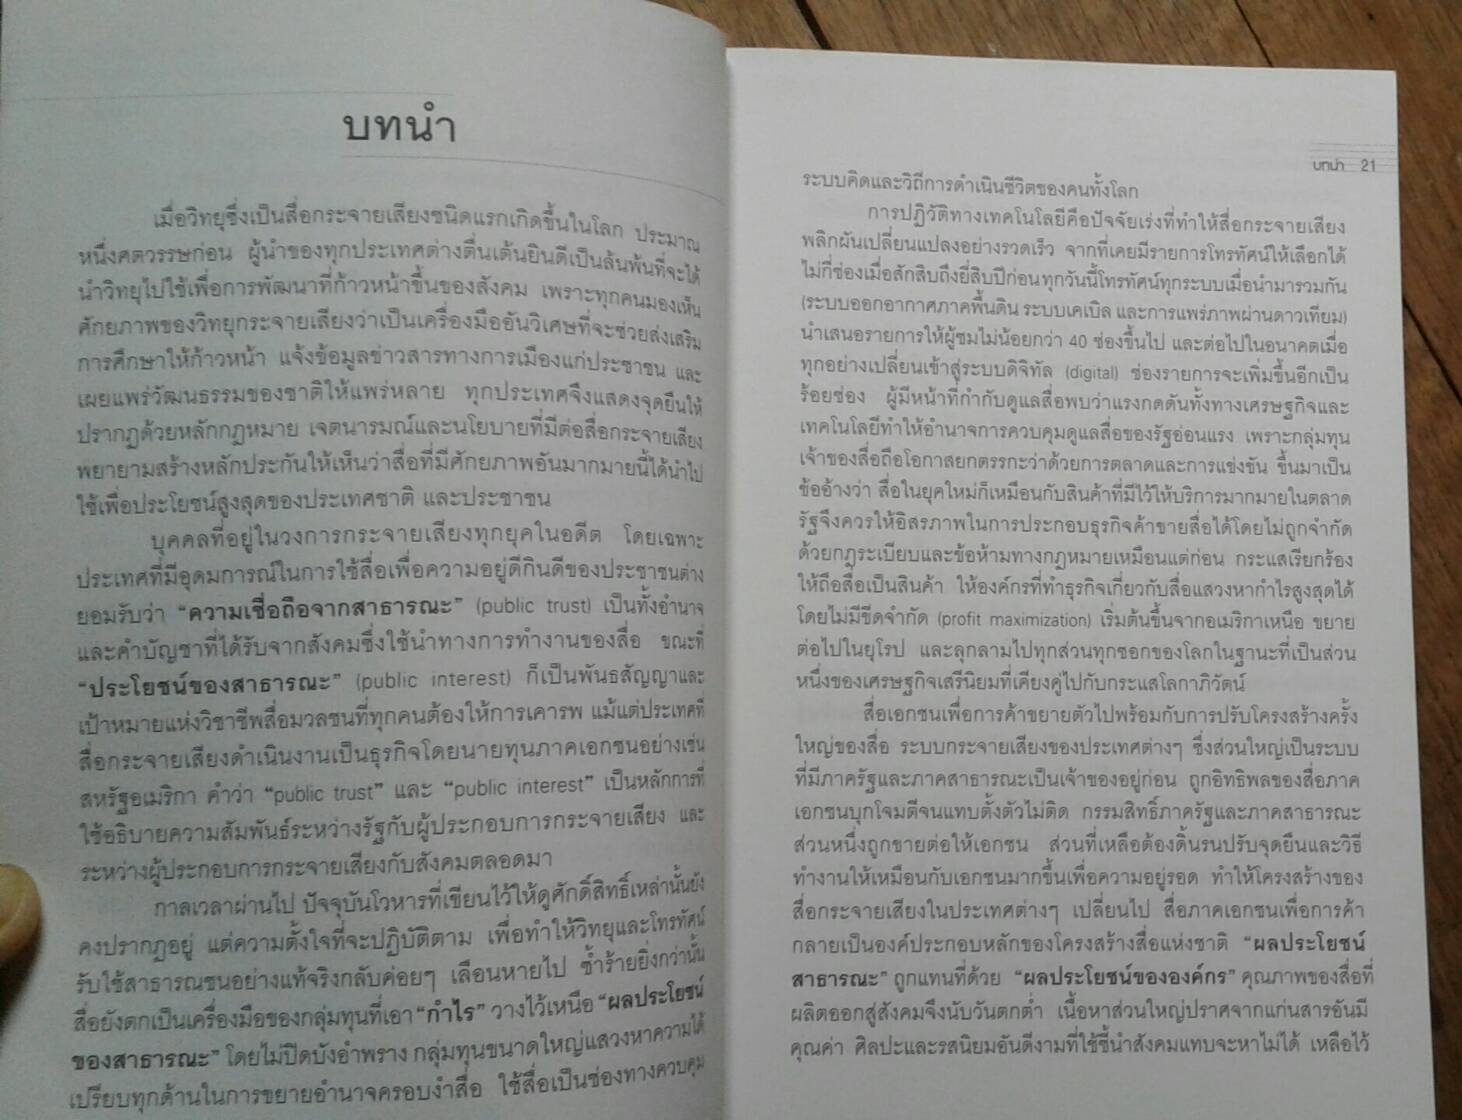 บทนำ
เมื่อวิทยุซึ่งเป็นสื่อกระจายเสียงชนิดแรกเกิดขึ้นในโลก ประมาณ
หนึ่งศตวรรษก่อน ผู้นำของทุกประเทศต่างตื่นเต้นยินดีเป็นล้นพ้นที่จะได้
นำวิทยุไปใช้เพื่อการพัฒนาที่ก้าวหน้าขึ้นของสังคม เพราะทุกคนมองเห็น
ศักยภาพของวิทยุกระจายเสียงว่าเป็นเครื่องมืออันวิเศษที่จะช่วยส่งเสริม
การศึกษาให้ก้าวหน้า แจ้งข้อมูลข่าวสารทางการเมืองแก่ประชาชน และ
เผยแพร่วัฒนธรรมของชาติให้แพร่หลาย ทุกประเทศจึงแสดงจุดยืนให้
ปรากฏด้วยหลักกฎหมาย เจตนารมณ์และนโยบายที่มีต่อสื่อกระจายเสียง
พยายามสร้างหลักประกันให้เห็นว่าสื่อที่มีศักยภาพอันมากมายนี้ได้นำไป
ใช้เพื่อประโยชน์สูงสุดของประเทศชาติ และประชาชน
บุคคลที่อยู่ในวงการกระจายเสียงทุกยุคในอดีต โดยเฉพาะ
ประเทศที่มีอุดมการณ์ในการใช้สื่อเพื่อความอยู่ดีกินดีของประชาชนต่าง
ยอมรับว่า “ความเชื่อถือจากสาธารณะ” (public trust) เป็นทั้งอำนาจ
และคำบัญชาที่ได้รับจากสังคมซึ่งใช้นำทางการทำงานของสื่อ ขณะที่
“ประโยชน์ของสาธารณะ” (public interest) ก็เป็นพันธสัญญาและ
เป้าหมายแห่งวิชาชีพสื่อมวลชนที่ทุกคนต้องให้การเคารพ แม้แต่ประเทศที่
สื่อกระจายเสียงดำเนินงานเป็นธุรกิจโดยนายทุนภาคเอกชนอย่างเช่น
สหรัฐอเมริกา คำว่า “public trust” และ “public interest” เป็นหลักการที่
ใช้อธิบายความสัมพันธ์ระหว่างรัฐกับผู้ประกอบการกระจายเสียง และ
ระหว่างผู้ประกอบการกระจายเสียงกับสังคมตลอดมา
กาลเวลาผ่านไป ปัจจุบันโวหารที่เขียนไว้ให้ดูศักดิ์สิทธิ์เหล่านั้นยัง
คงปรากฏอยู่ แต่ความตั้งใจที่จะปฏิบัติตาม เพื่อทำให้วิทยุและโทรทัศน์
รับใช้สาธารณชนอย่างแท้จริงกลับค่อยๆ เลือนหายไป ซ้ำร้ายยิ่งกว่านั้น
สื่อยังตกเป็นเครื่องมือของกลุ่มทุนที่เอา “กำไร” วางไว้เหนือ “ผลประโยชน์
ของสาธารณะ” โดยไม่ปิดบังอำพราง กลุ่มทุนขนาดใหญ่แสวงหาความได้
เปรียบทุกด้านในการขยายอำนาจครอบงำสื่อ ใช้สื่อเป็นช่องทางควบคุม
บทนำ 21
ระบบคิดและวิถีการดำเนินชีวิตของคนทั้งโลก
การปฏิวัติทางเทคโนโลยีคือปัจจัยเร่งที่ทำให้สื่อกระจายเสียง
พลิกผันเปลี่ยนแปลงอย่างรวดเร็ว จากที่เคยมีรายการโทรทัศน์ให้เลือกได้
ไม่กี่ช่องเมื่อสักสิบถึงยี่สิบปีก่อน ทุกวันนี้โทรทัศน์ทุกระบบเมื่อนำมารวมกัน
(ระบบออกอากาศภาคพื้นดิน ระบบเคเบิล และการแพร่ภาพผ่านดาวเทียม)
นำเสนอรายการให้ผู้ชมไม่น้อยกว่า 40 ช่องขึ้นไป และต่อไปในอนาคตเมื่อ
ทุกอย่างเปลี่ยนเข้าสู่ระบบดิจิทัล (digital) ช่องรายการจะเพิ่มขึ้นอีกเป็น
ร้อยช่อง ผู้มีหน้าที่กำกับดูแลสื่อพบว่าแรงกดดันทั้งทางเศรษฐกิจและ
เทคโนโลยีทำให้อำนาจการควบคุมดูแลสื่อของรัฐอ่อนแรง เพราะกลุ่มทุน
เจ้าของสื่อถือโอกาสยกตรรกะว่าด้วยการตลาดและการแข่งขัน ขึ้นมาเป็น
ข้ออ้างว่า สื่อในยุคใหม่ก็เหมือนกับสินค้าที่มีไว้ให้บริการมากมายในตลาด
รัฐจึงควรให้อิสรภาพในการประกอบธุรกิจค้าขายสื่อได้โดยไม่ถูกจำกัด
ด้วยกฎระเบียบและข้อห้ามทางกฎหมายเหมือนแต่ก่อน กระแสเรียกร้อง
ให้ถือสื่อเป็นสินค้า ให้องค์กรที่ทำธุรกิจเกี่ยวกับสื่อแสวงหากำไรสูงสุดได้
โดยไม่มีขีดจำกัด (profit maximization) เริ่มต้นขึ้นจากอเมริกาเหนือ ขยาย
ต่อไปในยุโรป และลุกลามไปทุกส่วนทุกซอกของโลกในฐานะที่เป็นส่วน
หนึ่งของเศรษฐกิจเสรีนิยมที่เคียงคู่ไปกับกระแสโลกาภิวัตน์
สื่อเอกชนเพื่อการค้าขยายตัวไปพร้อมกับการปรับโครงสร้างครั้ง
ใหญ่ของสื่อ ระบบกระจายเสียงของประเทศต่างๆ ซึ่งส่วนใหญ่เป็นระบบ
ที่มีภาครัฐและภาคสาธารณะเป็นเจ้าของอยู่ก่อน ถูกอิทธิพลของสื่อภาค
เอกชนบุกโจมตีจนแทบตั้งตัวไม่ติด กรรมสิทธิ์ภาครัฐและภาคสาธารณะ
ส่วนหนึ่งถูกขายต่อให้เอกชน ส่วนที่เหลือต้องดิ้นรนปรับจุดยืนและวิธี
ทำงานให้เหมือนกับเอกชนมากขึ้นเพื่อความอยู่รอด ทำให้โครงสร้างของ
สื่อกระจายเสียงในประเทศต่างๆ เปลี่ยนไป สื่อภาคเอกชนเพื่อการค้า
กลายเป็นองค์ประกอบหลักของโครงสร้างสื่อแห่งชาติ “ผลประโยชน์
สาธารณะ” ถูกแทนที่ด้วย “ผลประโยชน์ขององค์กร” คุณภาพของสื่อที่
ผลิตออกสู่สังคมจึงนับวันตกต่ำ เนื้อหาส่วนใหญ่ปราศจากแก่นสารอันมี
คุณค่า ศิลปะและรสนิยมอันดีงามที่ใช้ชี้นำสังคมแทบจะหาไม่ได้ เหลือไว้